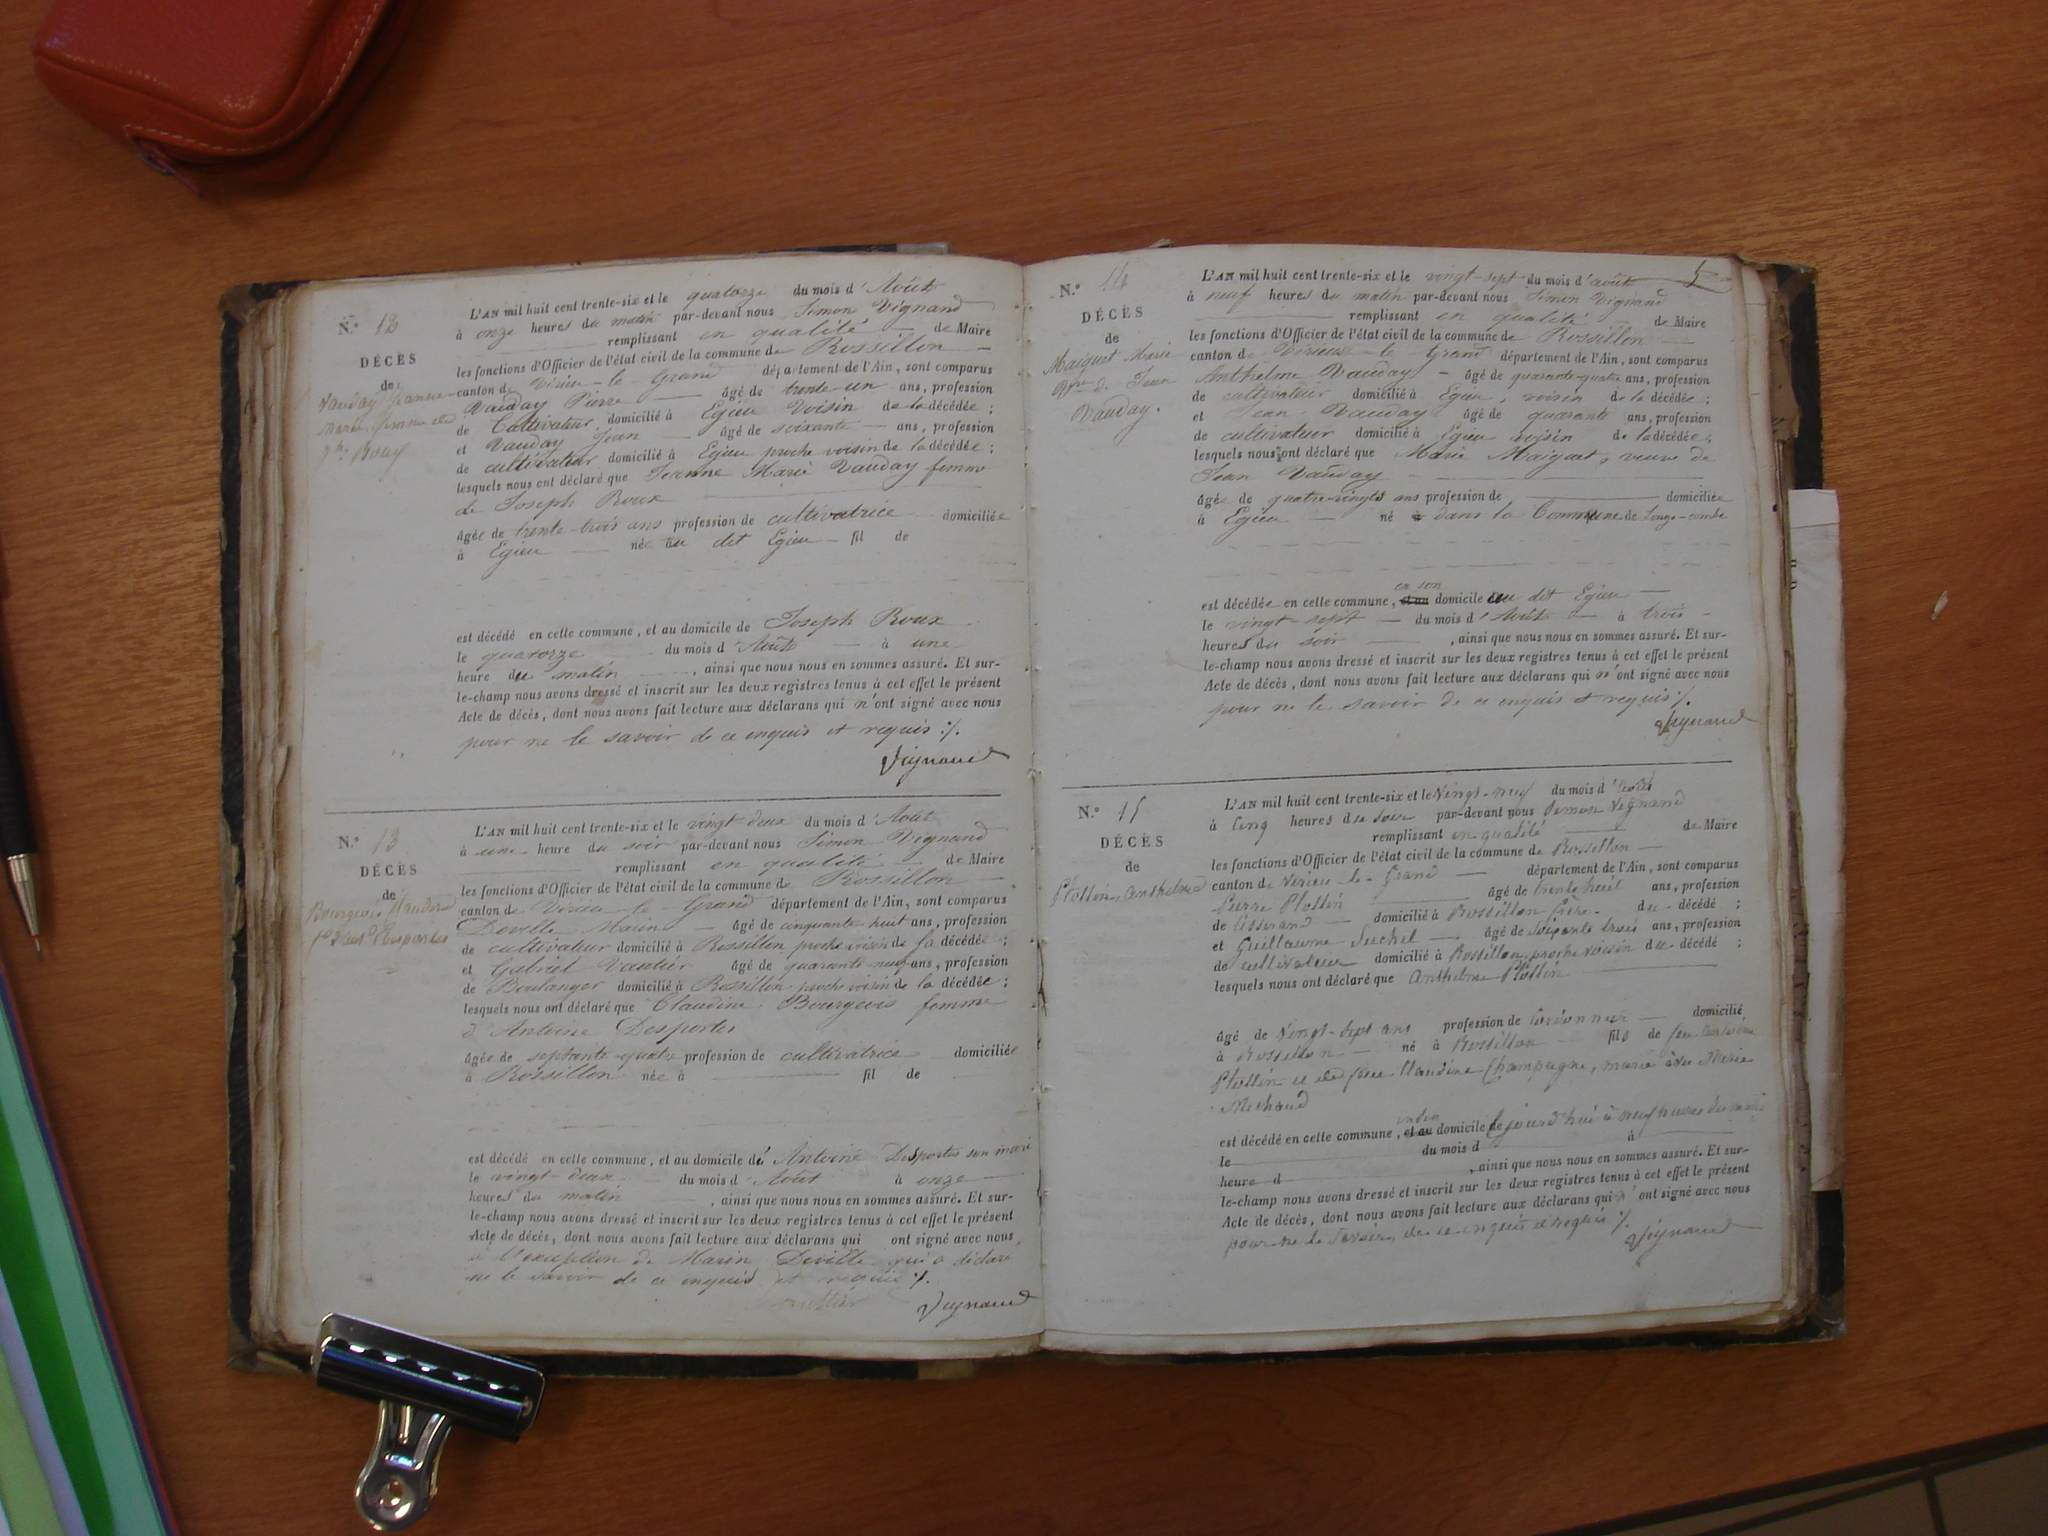 N.º 12
DÉCÈS
de
Vauday Jeanne
Marie femme de
Jh. Roux
L'AN mil huit cent trente-six et le quatorze du mois d'Août
à onze heures du matin par-devant nous Simon Vignand
remplissant en qualité de Maire
les fonctions d'Officier de l'état civil de la commune de Rossillon
canton de Virieu-le-Grand département de l'Ain, sont comparus
Vauday Pierre âgé de trente-un ans, profession
de Cultivateur domicilié à Egieu voisin de la décédée ;
et Vauday Jean âgé de soixante ans, profession
de cultivateur domicilié à Egieu proche voisin de la décédée ;
lesquels nous ont déclaré que Jeanne Marie Vauday femme
de Joseph Roux
âgée de trente-trois ans profession de cultivatrice domiciliée
à Egieu née au dit Egieu fil de
est décédé en cette commune, et au domicile de Joseph Roux
le quatorze du mois d'Août à une
heure du matin , ainsi que nous nous en sommes assuré. Et sur-
le-champ nous avons dressé et inscrit sur les deux registres tenus à cet effet le présent
Acte de décès, dont nous avons fait lecture aux déclarans qui n'ont signé avec nous
pour ne le savoir de ce enquis et requis ./.
Vignand
N.º 13
DÉCÈS
de
Bourgeois Claudine
L'AN mil huit cent trente-six et le vingt deux du mois d'Août
à une heure du soir par-devant nous Simon Vignand
remplissant en qualité de Maire
les fonctions d'Officier de l'état civil de la commune de Rossillon
canton de Virieu-le-Grand département de l'Ain, sont comparus
Deville Marin âgé de cinquante huit ans, profession
de cultivateur domicilié à Rossillon proche voisin de la décédée ;
et Gabriel Vautier âgé de quarante-neuf ans, profession
de Boulanger domicilié à Rossillon proche voisin de la décédée ;
lesquels nous ont déclaré que Claudine Bourgeois femme
d'Antoine Desportes
âgée de septante-quatre profession de cultivatrice domiciliée
à Rossillon née à fil de
est décédé en cette commune, et au domicile de Antoine Desportes son mari
le vingt-deux du mois d'Août à onze
heures du matin , ainsi que nous nous en sommes assuré. Et sur-
le-champ nous avons dressé et inscrit sur les deux registres tenus à cet effet le présent
Acte de décès, dont nous avons fait lecture aux déclarans qui ont signé avec nous,
à l'exception de Marin Deville qui a déclaré
ne le savoir de ce enquis et requis ./.
Vignand
5
N.º 14
DÉCÈS
de
Maiguet Marie
Vve de Jean
Vauday.
L'AN mil huit cent trente-six et le vingt-sept du mois d'août
à neuf heures du matin par-devant nous Simon Vignand
remplissant en qualité de Maire
les fonctions d'Officier de l'état civil de la commune de Rossillon
canton de Virieux-le-Grand département de l'Ain, sont comparus
Anthelme Vauday âgé de quarante-quatre ans, profession
de cultivateur domicilié à Egieu, voisin de la décédée ;
et Jean Vauday âgé de quarante ans, profession
de cultivateur domicilié à Egieu voisin de la décédée ;
lesquels nous ont déclaré que Marie Maiguet, veuve de
Jean Vauday
âgée de quatre-vingts ans profession de domiciliée
à Egieu né à dans la Commune de Longe-combe
en son
est décédée en cette commune, et au domicile au dit Egieu
le vingt-sept du mois d'Août à trois
heures du soir , ainsi que nous nous en sommes assuré. Et sur-
le-champ nous avons dressé et inscrit sur les deux registres tenus à cet effet le présent
Acte de décès, dont nous avons fait lecture aux déclarans qui n'ont signé avec nous
pour ne le savoir de ce enquis et requis ./.
Vignand
N.º 15
DÉCÈS
de
Plottin anthelme
L'AN mil huit cent trente-six et le Vingt-neuf du mois d'août
à cinq heures du soir par-devant nous Simon Vignand
remplissant en qualité de Maire
les fonctions d'Officier de l'état civil de la commune de Rossillon
canton de Virieu-le-Grand département de l'Ain, sont comparus
Pierre Plottin âgé de trente huit ans, profession
de tisserand domicilié à Rossillon frère du décédé ;
et Guillaume Suchet âgé de soixante trois ans, profession
de cultivateur domicilié à Rossillon proche voisin du décédé ;
lesquels nous ont déclaré que anthelme Plottin
âgé de Vingt-sept ans profession de Cordonnier domicilié
à Rossillon né à Rossillon fils de feu
Plottin et de feue Claudine Champagne, marié à Marie
Michaud
est décédé en cette commune, et au domicile de ce jourd'hui à neuf heures du matin
le du mois d à
heure d , ainsi que nous nous en sommes assuré. Et sur-
le-champ nous avons dressé et inscrit sur les deux registres tenus à cet effet le présent
Acte de décès, dont nous avons fait lecture aux déclarans qui n'ont signé avec nous
pour ne le savoir, de ce enquis et requis ./.
Vignand